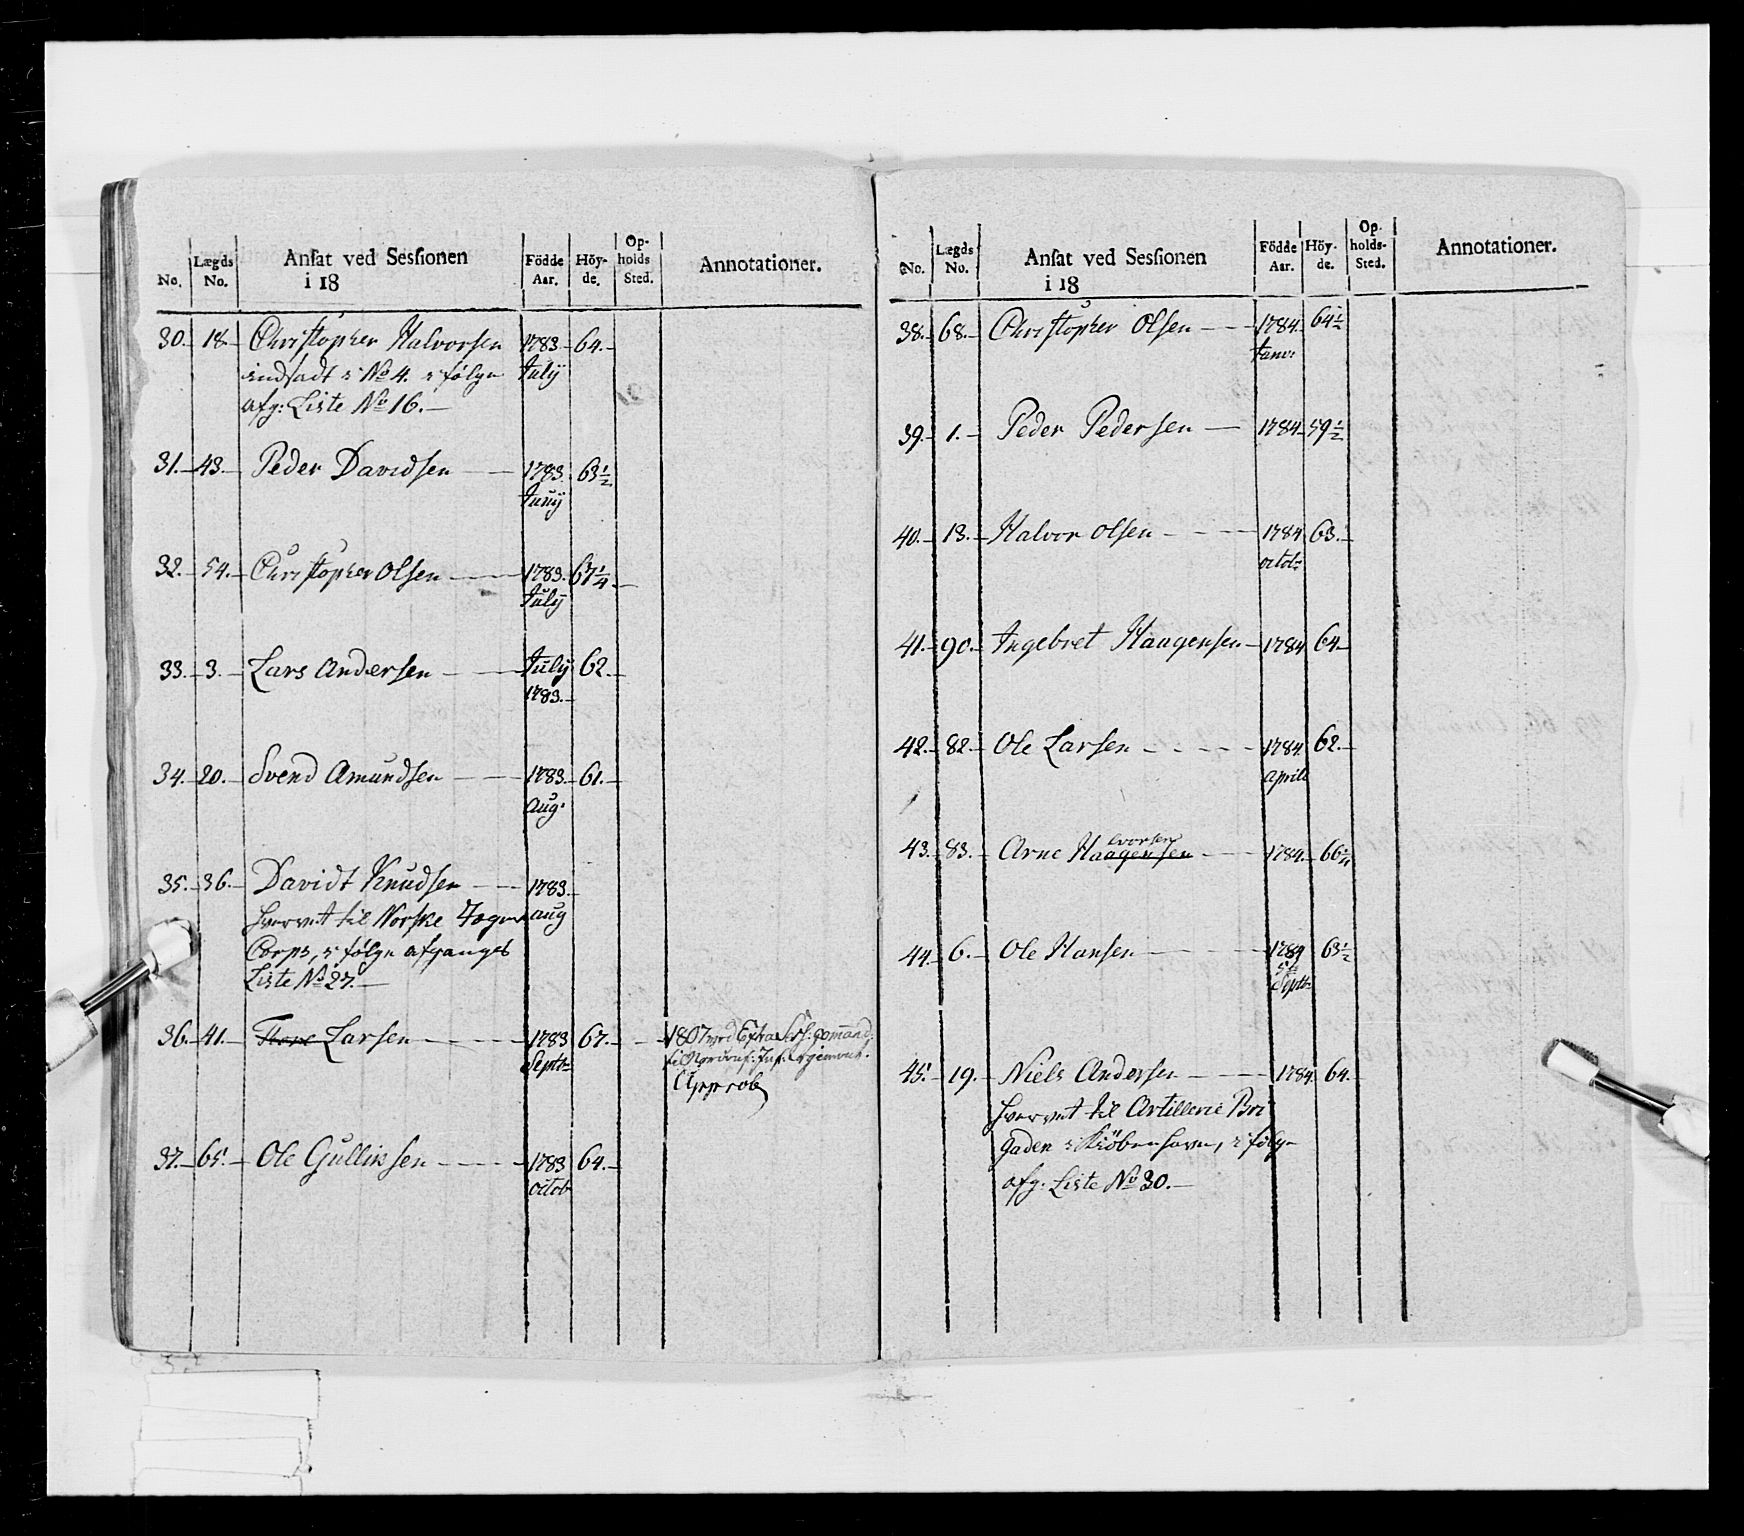 No. Lægds No. Ansat ved Sessionen i 18 Födde Aar. Höyde. Opholds Sted. Annotationer.
30. 18. Christopher Halvorsen 1783. 64.
indsadt i No 4. i følge July
afg: Liste No 16.
31. 43. Peder Davidsen 1783. 63 1/2
Juny
32. 54. Christopher Olsen 1783. 67 1/4
July
33. 3. Lars Andersen July 62.
1783.
34. 20. Svend Amundsen 1783. 61.
Aug.
35. 36. Davidt Knudsen 1783.
hvervet til Norske Jæger aug
Corps, i følge afgangs
Liste No 27.
36. 41. Thore Larsen 1783 67. 1807 ved Extra Sess:
Septbr
Approb
37. 65. Ole Gulliksen 1783 64.
octob
No. Lægds No. Ansat ved Sessionen i 18 Födde Aar. Höyde. Opholds-Sted. Annotationer.
38. 68. Christopher Olsen 1784. 64 1/2
Janv:
39. 1. Peder Pedersen 1784. 59 1/2
40. 13. Halvor Olsen 1784 63.
octob:
41. 90. Ingebret Haagensen 1784 64.
42. 82. Ole Larsen 1784. 62.
Aprill
lvorsen
43. 83. Arne Haagensen 1784. 66 1/4
44. 6. Ole Hansen 1784 63 1/2
Septbr
45. 19. Niels Andersen 1784. 64.
hvervet til Artillerie Bri
gaden i Kiöbenhavn, i følge
afg: Liste No 30.